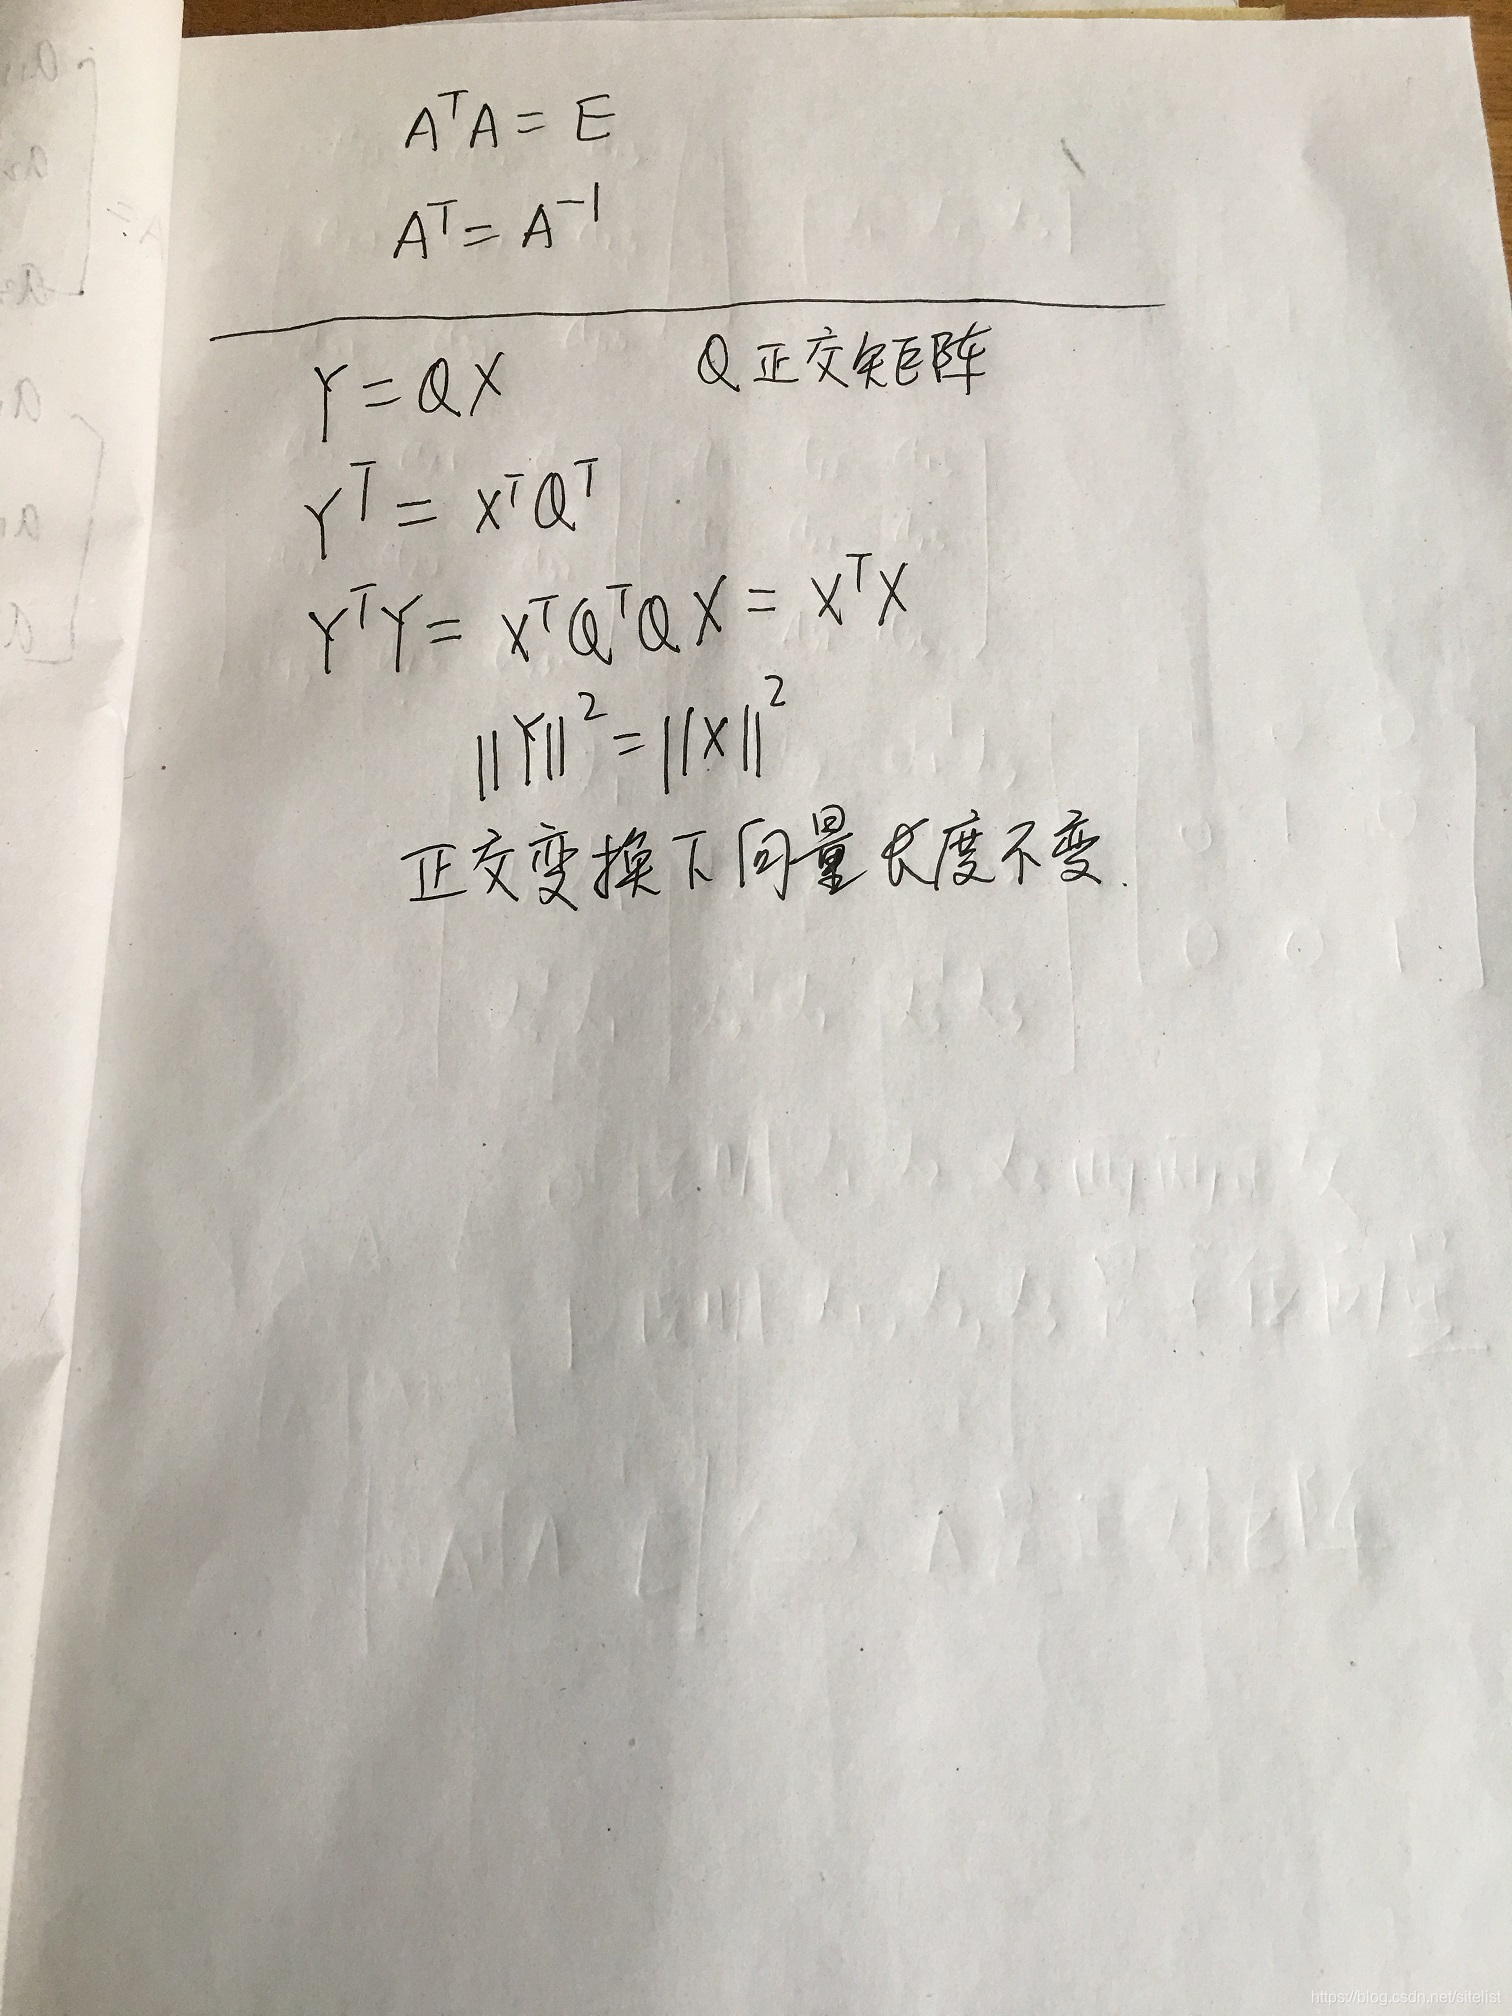 AᵀA = E
Aᵀ = A⁻¹
Y = QX Q正交矩阵
Yᵀ = XᵀQᵀ
YᵀY = XᵀQᵀQX = XᵀX
||Y||² = ||X||²
正交变换下向量长度不变.
https://blog.csdn.net/sitelist